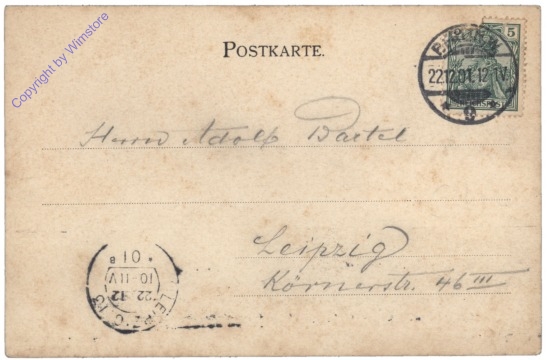 Copyright by Wimstore
POSTKARTE.
5
22.12.01. 12-1V.
Herrn Adolf Bartel
Leipzig
Körnerstr. 46 III
LEIPZIG 13
22.12
10-11V
* 01 B